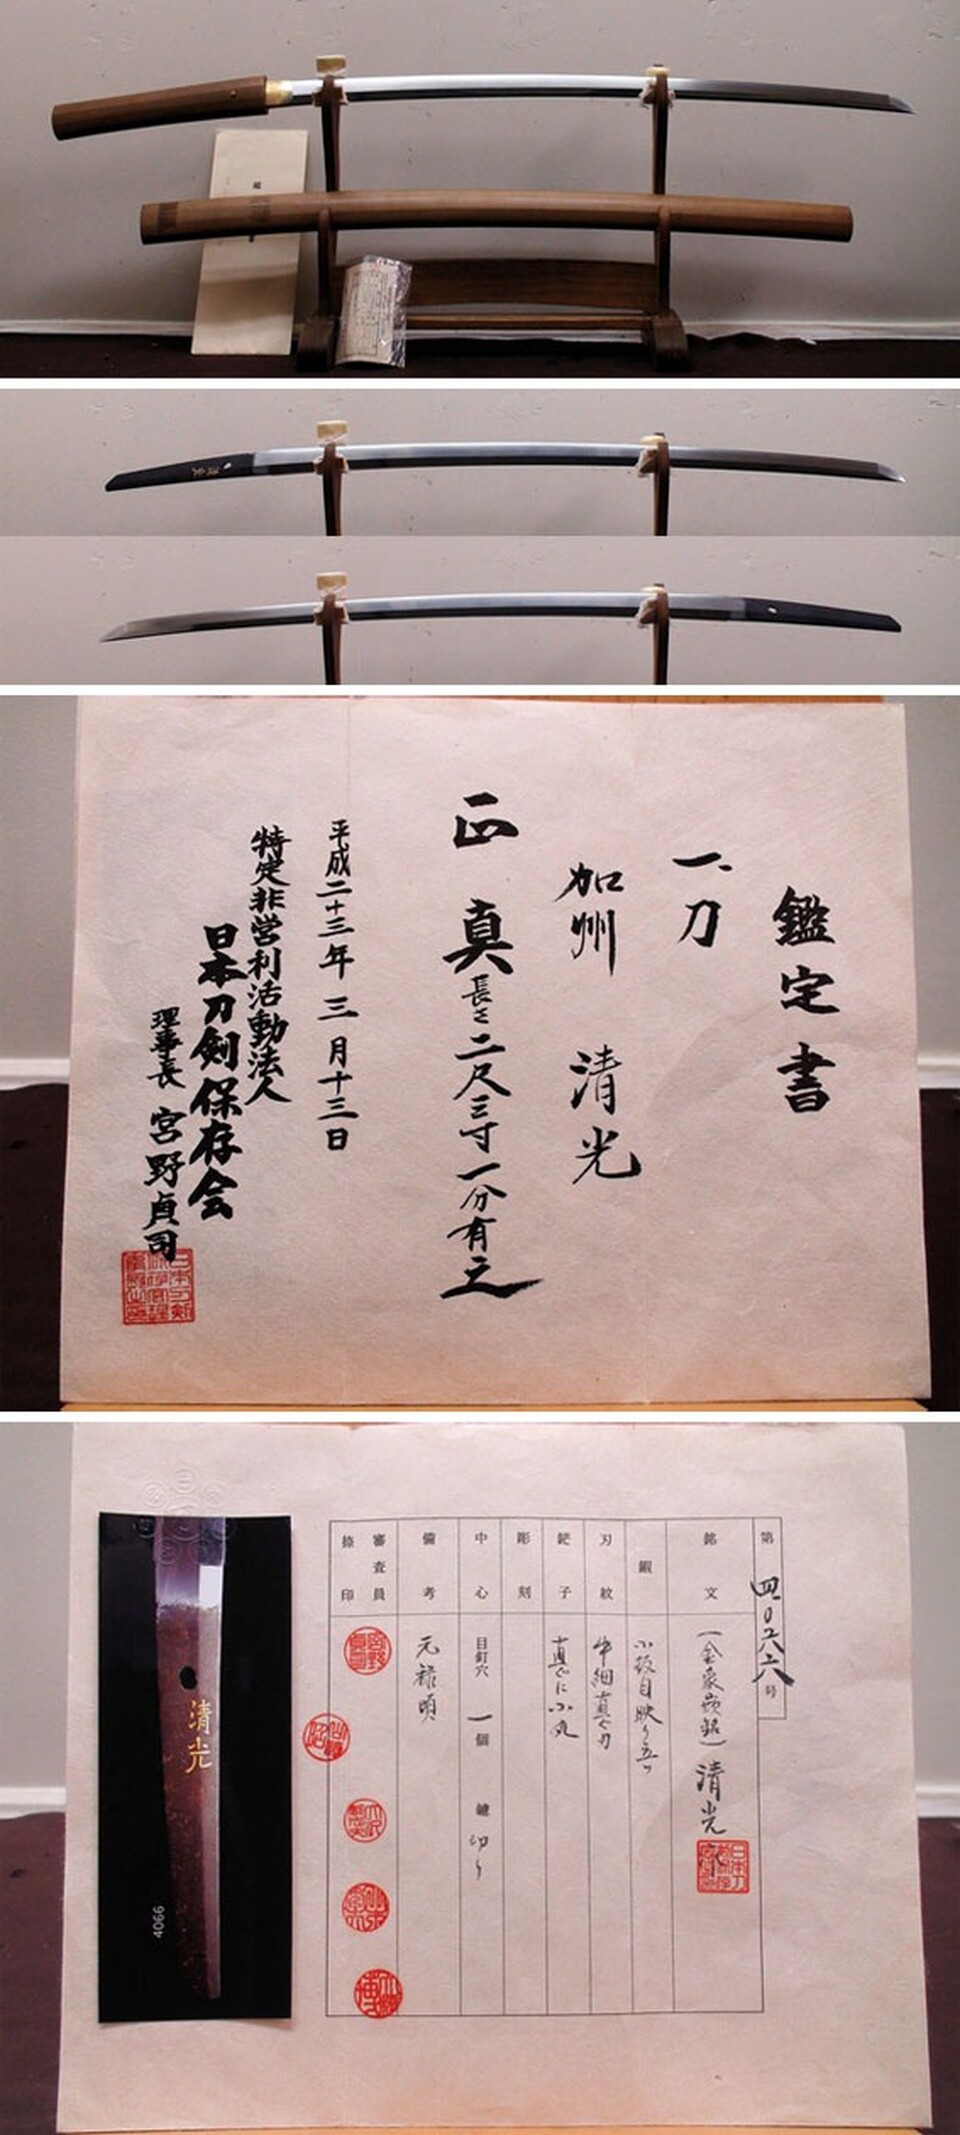 鑑定書
一、刀
加州 清光
正真 長さ二尺三寸一分有之
平成二十三年三月十三日
特定非営利活動法人
日本刀剣保存会
理事長 宮野貞司
第四0六六号
銘文 (金象嵌銘) 清光
鍜 小板目映り立つ
刃紋 中細直ぐ刃
鋩子 直ぐに小丸
彫刻
中心 目釘穴 一個 鑢 切り
備考 元禄頃
審査員
捺印
清光
4066